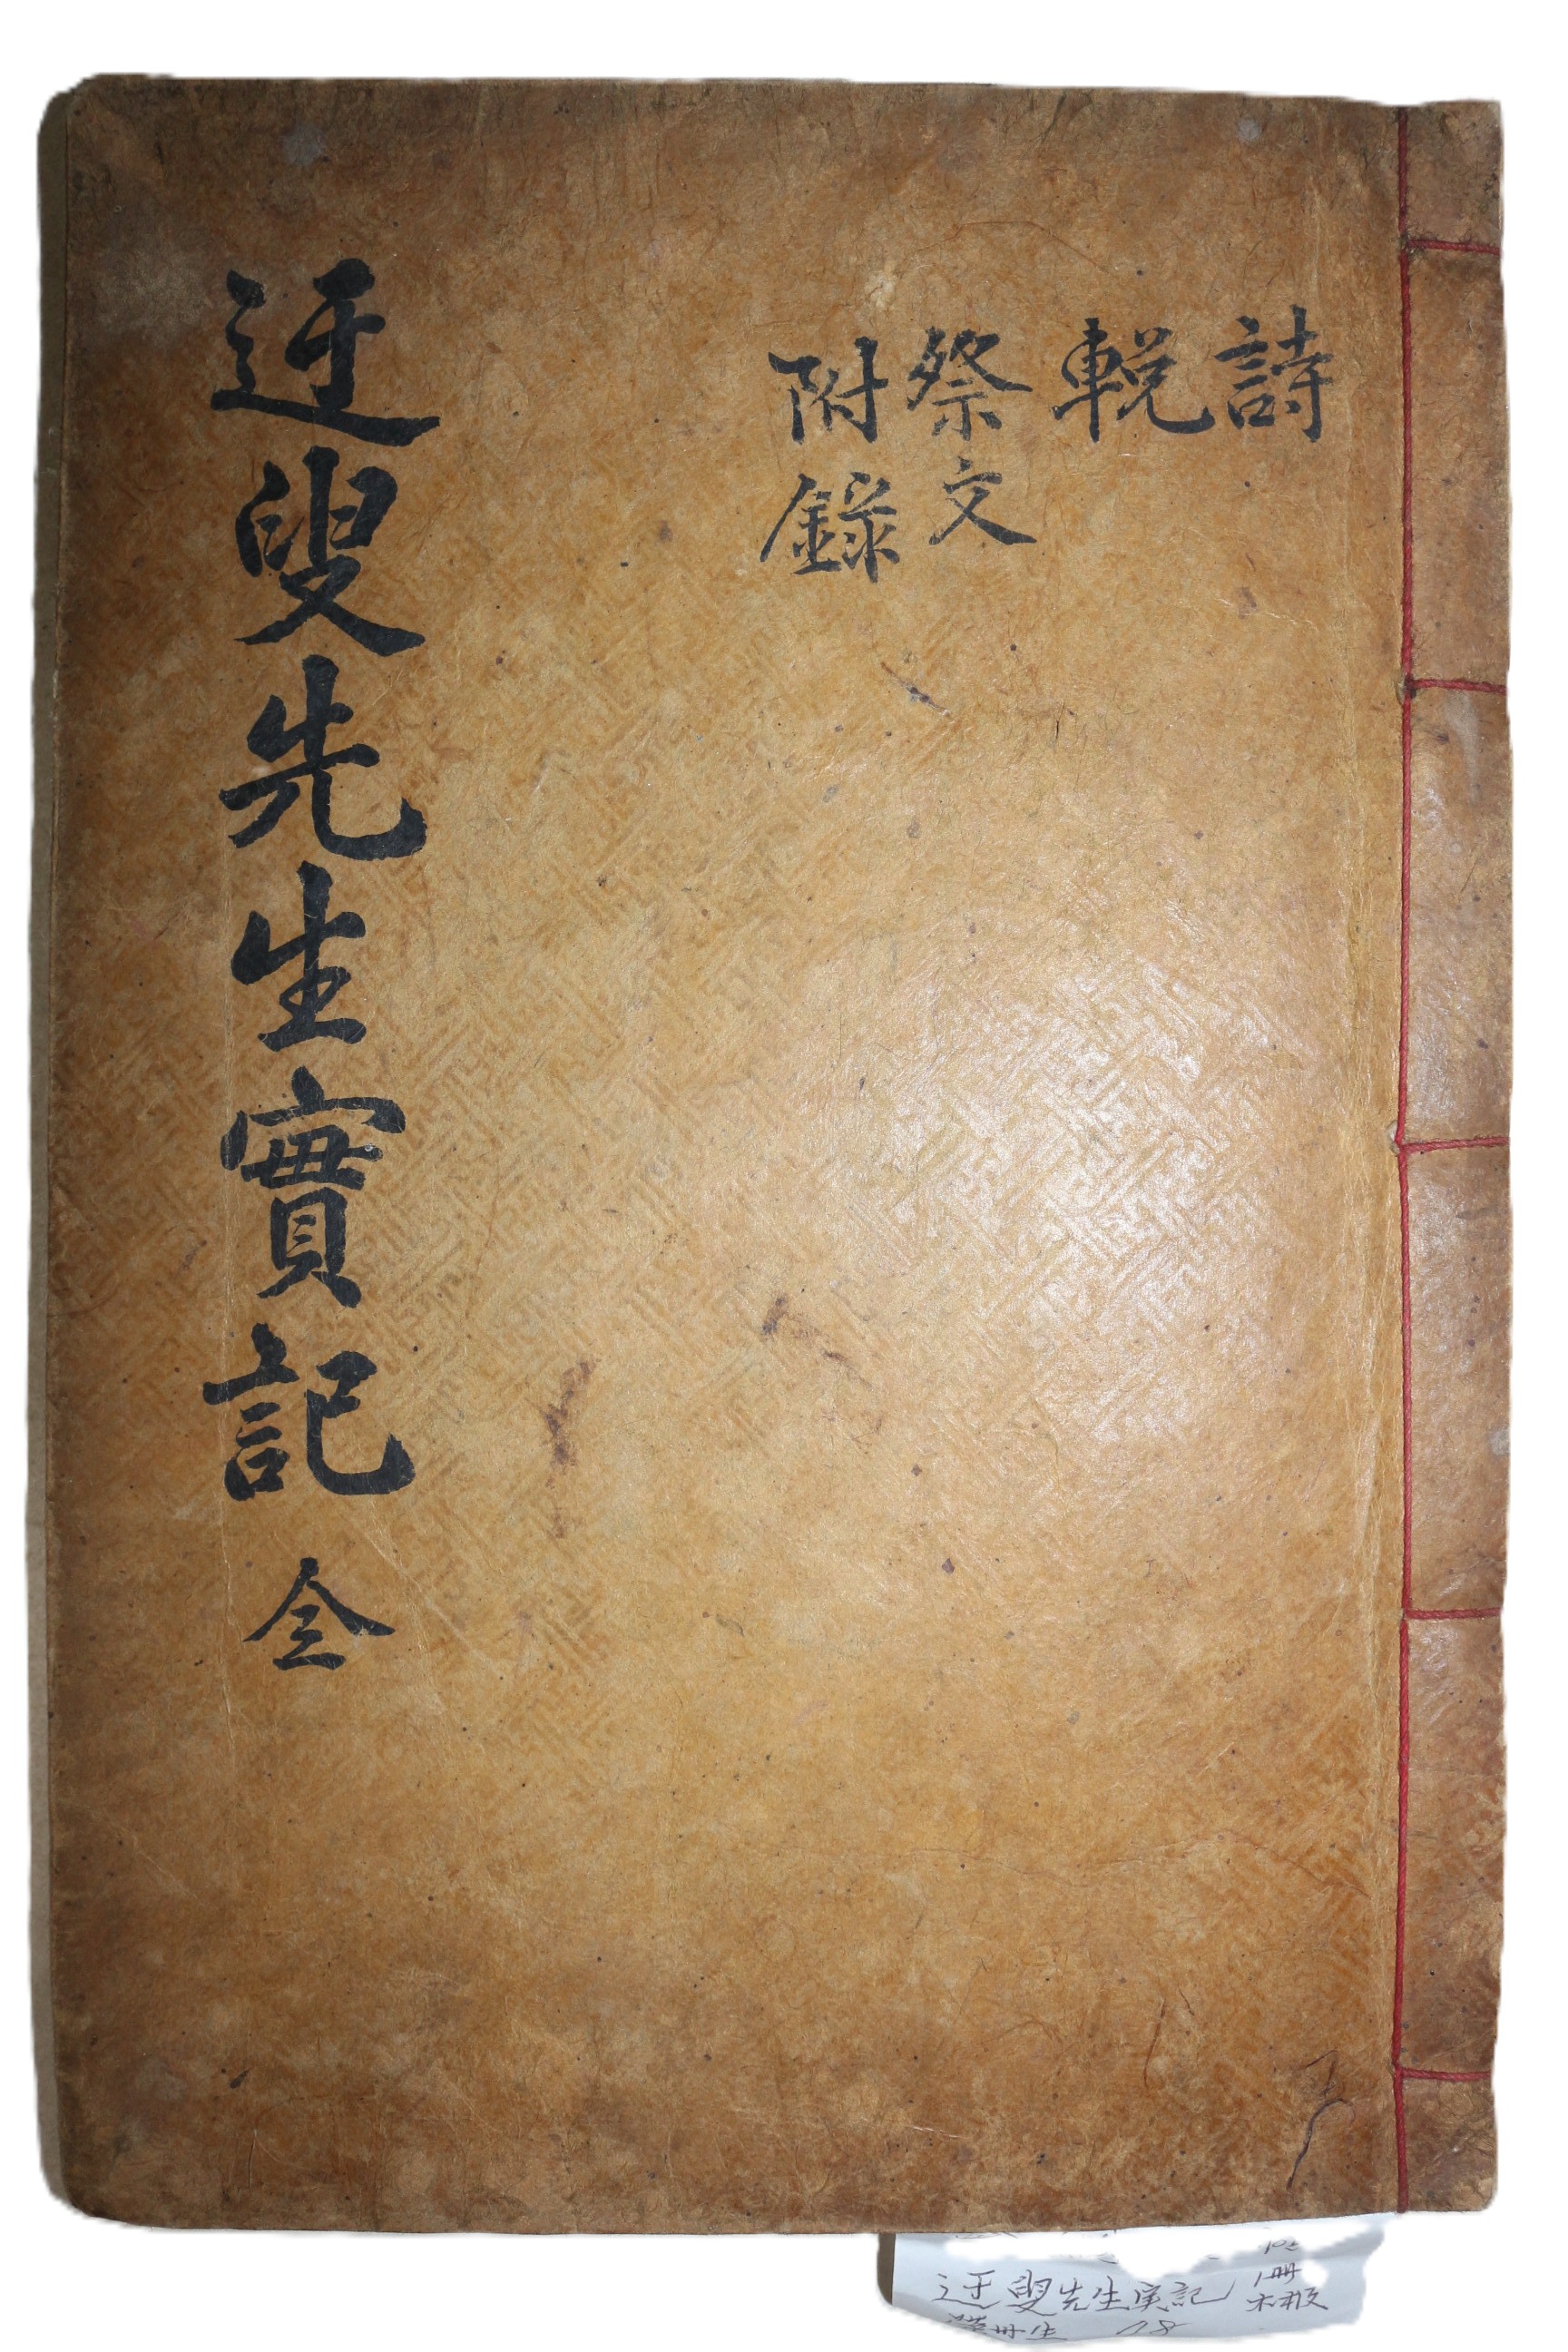 詩
輓
祭文
附錄
迂叟先生實記 全
迂叟先生実記
1冊
木板